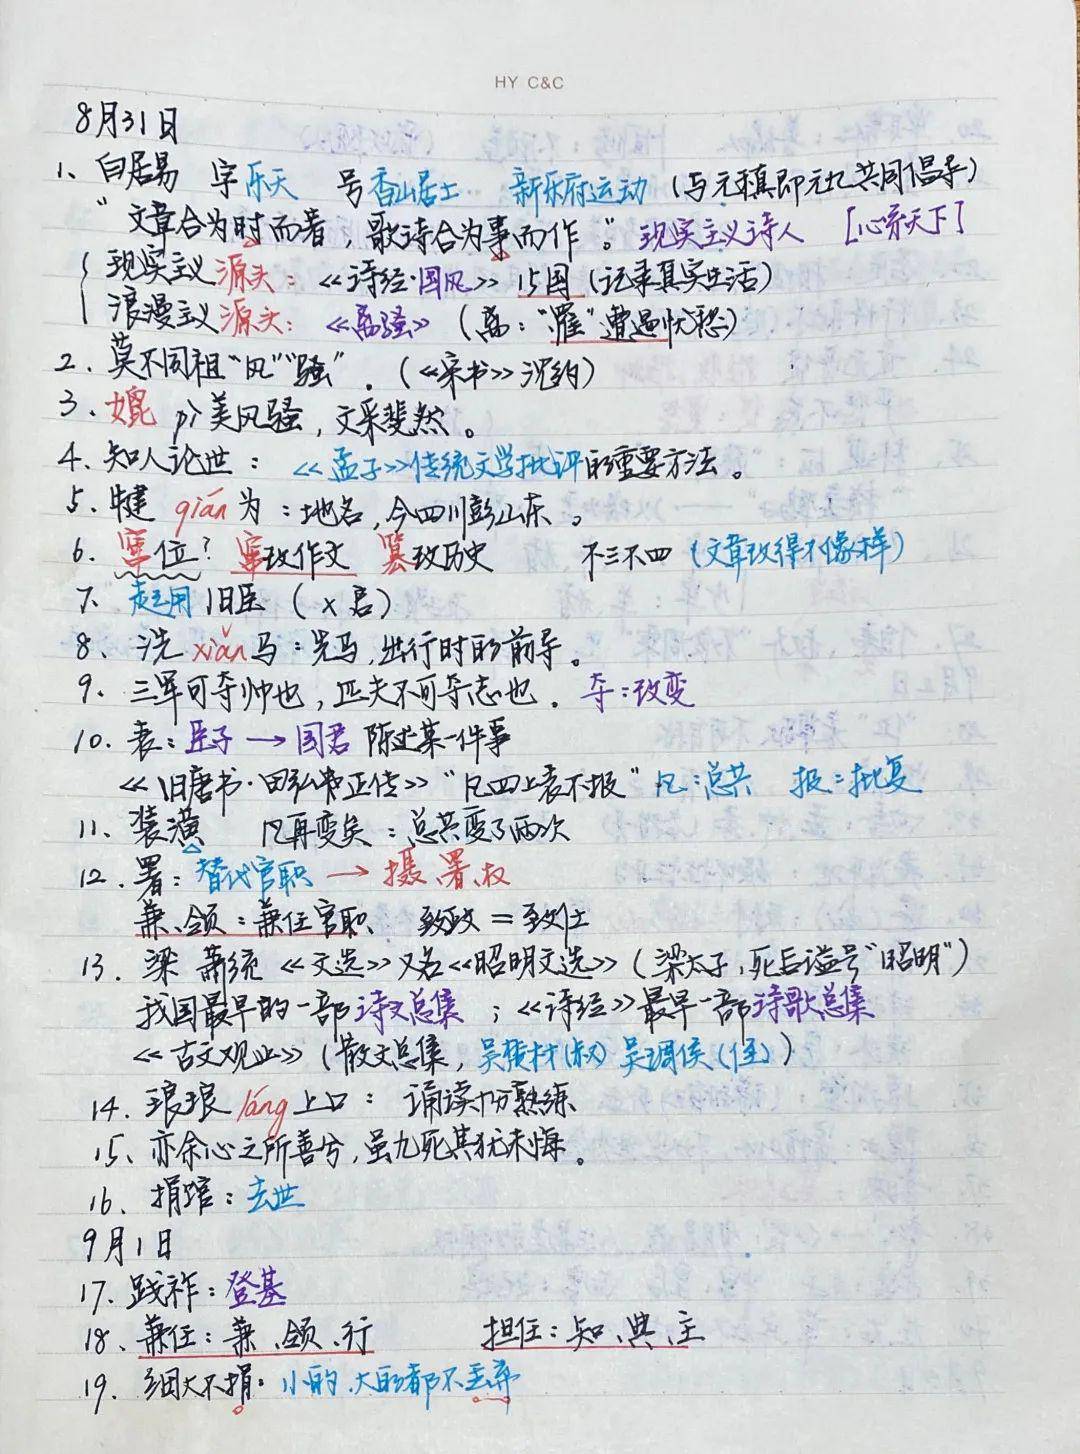 HY C&C
8月31日
1、白居易 字乐天 号香山居士 新乐府运动 (与元稹即元九共同倡导)
“文章合为时而著，歌诗合为事而作。”现实主义诗人 [心系天下]
现实主义源头：《诗经·国风》 15国 (记录真实生活)
浪漫主义源头：《离骚》 (离："罹"遭遇忧愁)
2、莫不同祖“风”“骚”. (《宋书》沈约)
3、媲美风骚，文采斐然。
4、知人论世：《孟子》传统文学批评的重要方法。
5、犍 qián 为：地名，今四川彭山东。
6、窜位? 窜改作文 篡改历史 不三不四 (文章改得不像样)
7、起用旧臣 (x启)
8、洗 xiǎn 马：先马，出行时的前导。
9、三军可夺帅也，匹夫不可夺志也. 夺：改变
10、表：臣子→国君 陈述某一件事
《旧唐书·田弘正传》“凡四上表不报” 凡：总共 报：批复
11、装潢 凡再变矣：总共变了两次
12.署：替代官职→摄、署、权
兼、领：兼任官职 致政=致仕
13、梁 萧统《文选》又名《昭明文选》(梁太子，死后谥号“昭明”)
我国最早的一部诗文总集；《诗经》最早一部诗歌总集
《古文观止》(散文总集，吴楚材(叔) 吴调侯(侄))
14、琅琅 láng 上口：诵读十分熟练
15、亦余心之所善兮，虽九死其犹未悔。
16、捐馆：去世
9月1日
17、践祚：登基
18、兼任：兼、领、行 担任：知、典、主
19、细大不捐：小的、大的都不丢弃